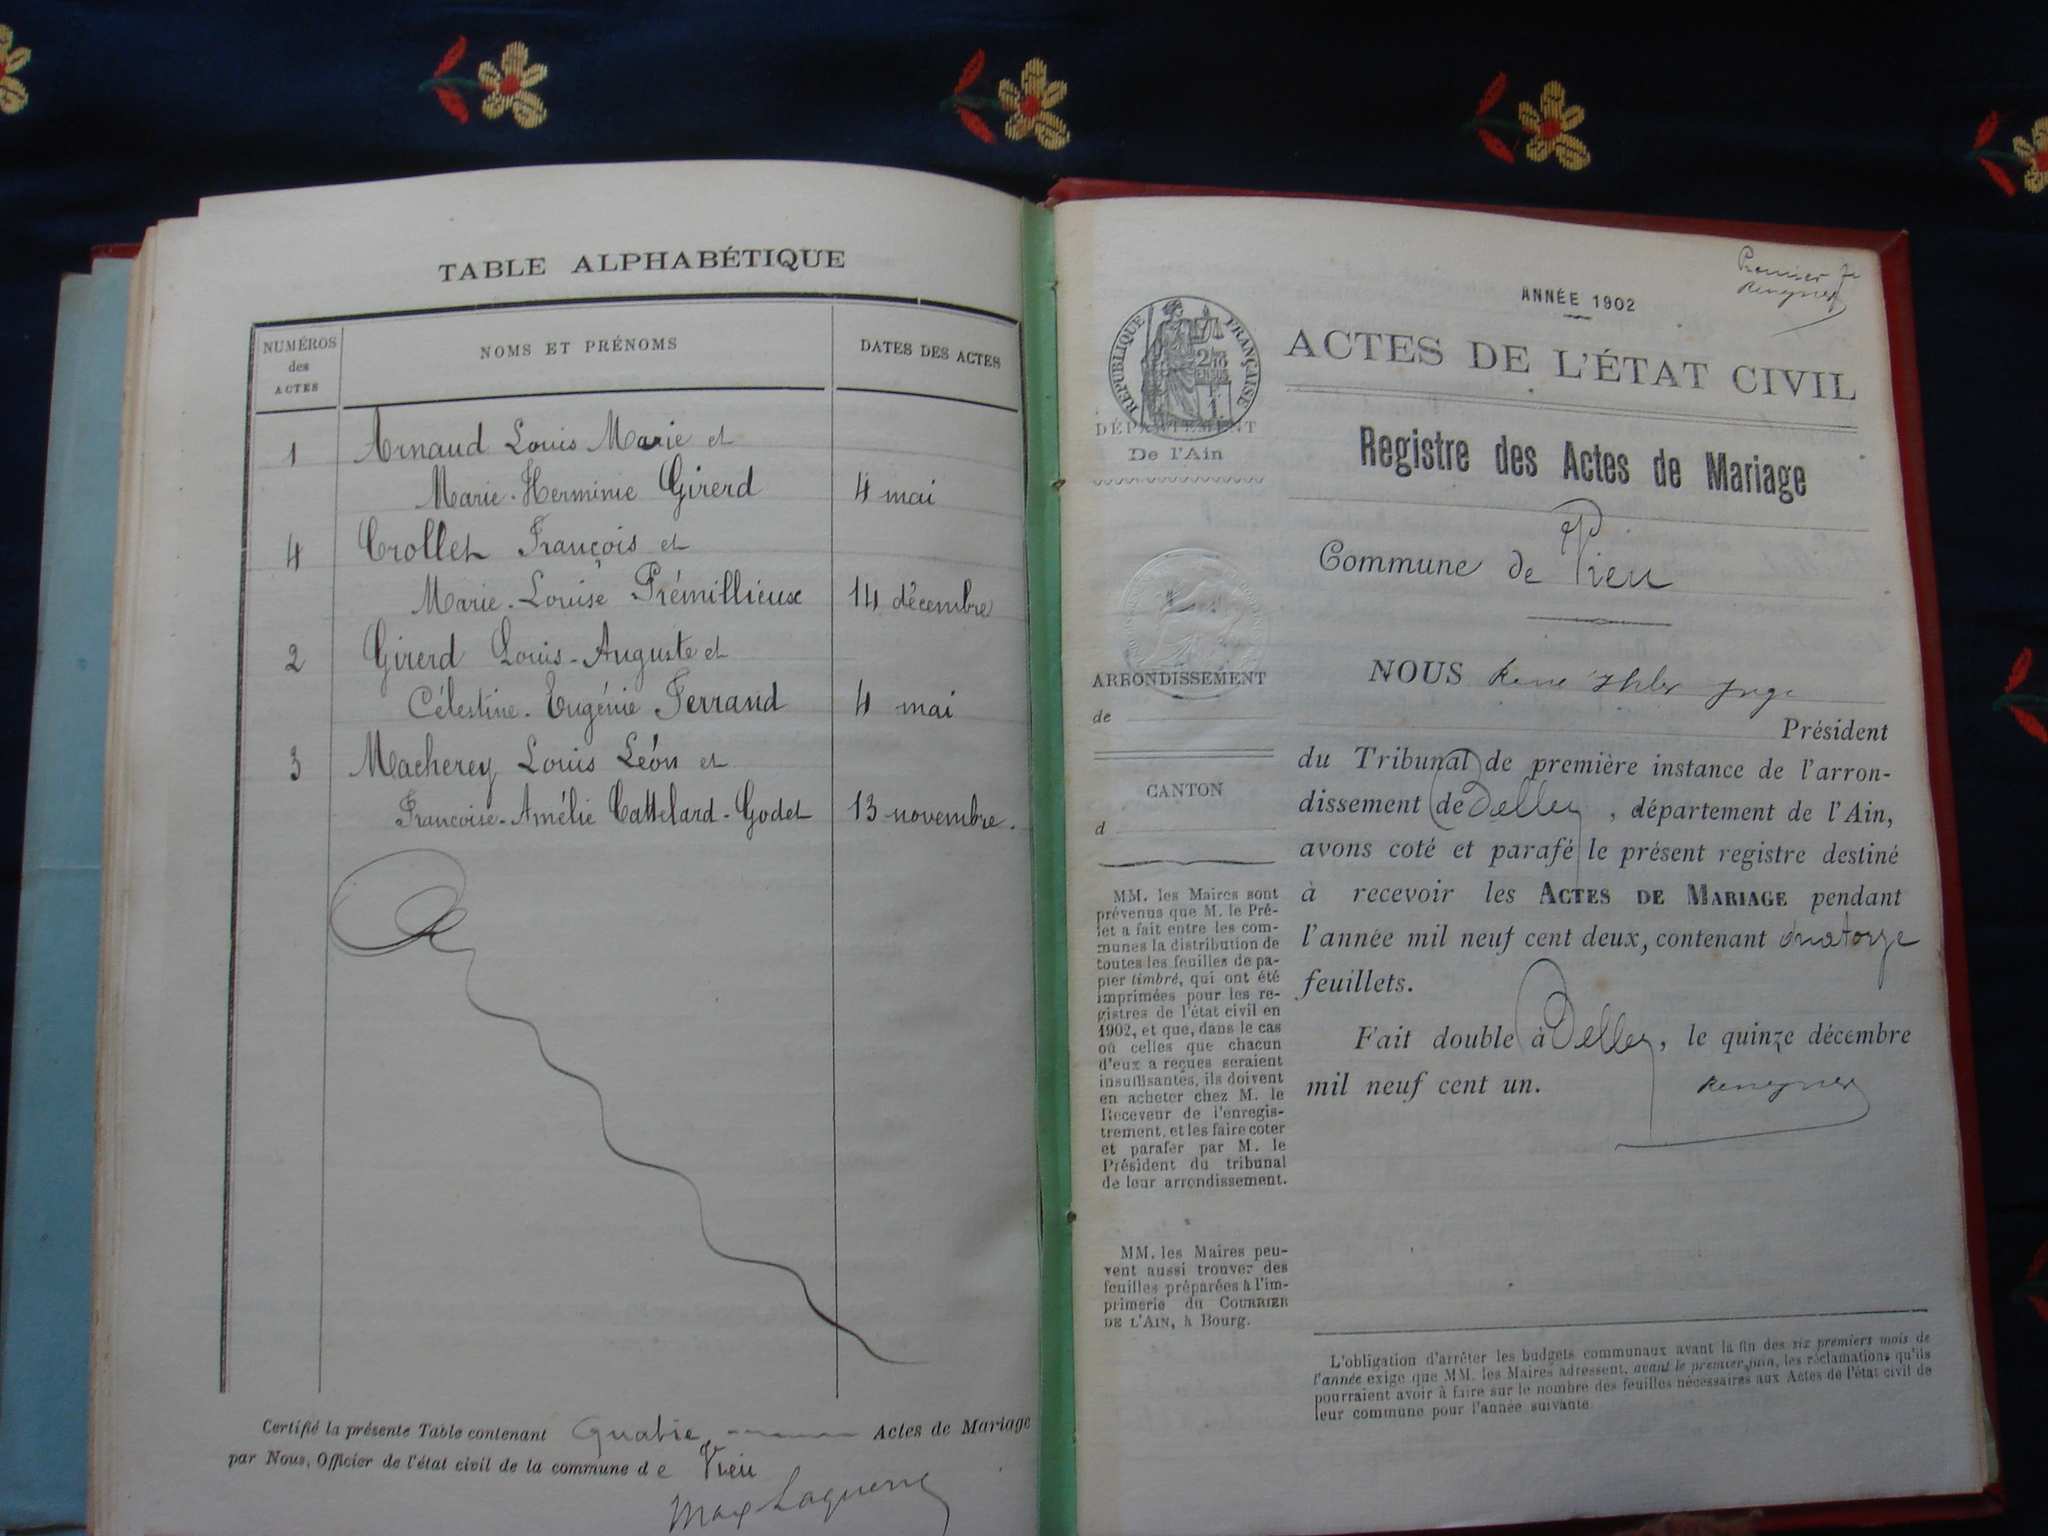 TABLE ALPHABÉTIQUE
NUMÉROS
des
ACTES
NOMS ET PRÉNOMS
DATES DES ACTES
1 Arnaud Louis Marie et
Marie-Herminie Girerd 4 mai
4 Crollet François et
Marie-Louise Prémillieux 14 décembre
2 Girerd Louis-Auguste et
Célestine-Eugénie Ferrand 4 mai
3 Macherey Louis Léon et
Françoise-Amélie Cattelard-Godet 13 novembre.
Certifié la présente Table contenant Quatre Actes de Mariage
par Nous, Officier de l'état civil de la commune de Vieu
Max Laguerre
Premier
ANNÉE 1902
ACTES DE L'ÉTAT CIVIL
RÉPUBLIQUE FRANÇAISE
DÉPARTEMENT
De l'Ain
Registre des Actes de Mariage
Commune de Vieu
ARRONDISSEMENT
de
CANTON
d
MM. les Maires sont
prévenus que M. le Pré-
fet a fait entre les com-
munes la distribution de
toutes les feuilles de pa-
pier timbré, qui ont été
imprimées pour les re-
gistres de l'état civil en
1902, et que, dans le cas
où celles que chacun
d'eux a reçues seraient
insuffisantes, ils doivent
en acheter chez M. le
Receveur de l'enregis-
trement, et les faire coter
et parafer par M. le
Président du tribunal
de leur arrondissement.
MM. les Maires peu-
vent aussi trouver des
feuilles préparées à l'im-
primerie du COURRIER
DE L'AIN, à Bourg.
NOUS René Juge
Président
du Tribunal de première instance de l'arron-
dissement de Belley, département de l'Ain,
avons coté et parafé le présent registre destiné
à recevoir les ACTES DE MARIAGE pendant
l'année mil neuf cent deux, contenant quatorze
feuillets.
Fait double à Belley, le quinze décembre
mil neuf cent un.
L'obligation d'arrêter les budgets communaux avant la fin des six premiers mois de
l'année exige que MM. les Maires adressent, avant le premier juin, les réclamations qu'ils
pourraient avoir à faire sur le nombre des feuilles nécessaires aux Actes de l'état civil de
leur commune pour l'année suivante.